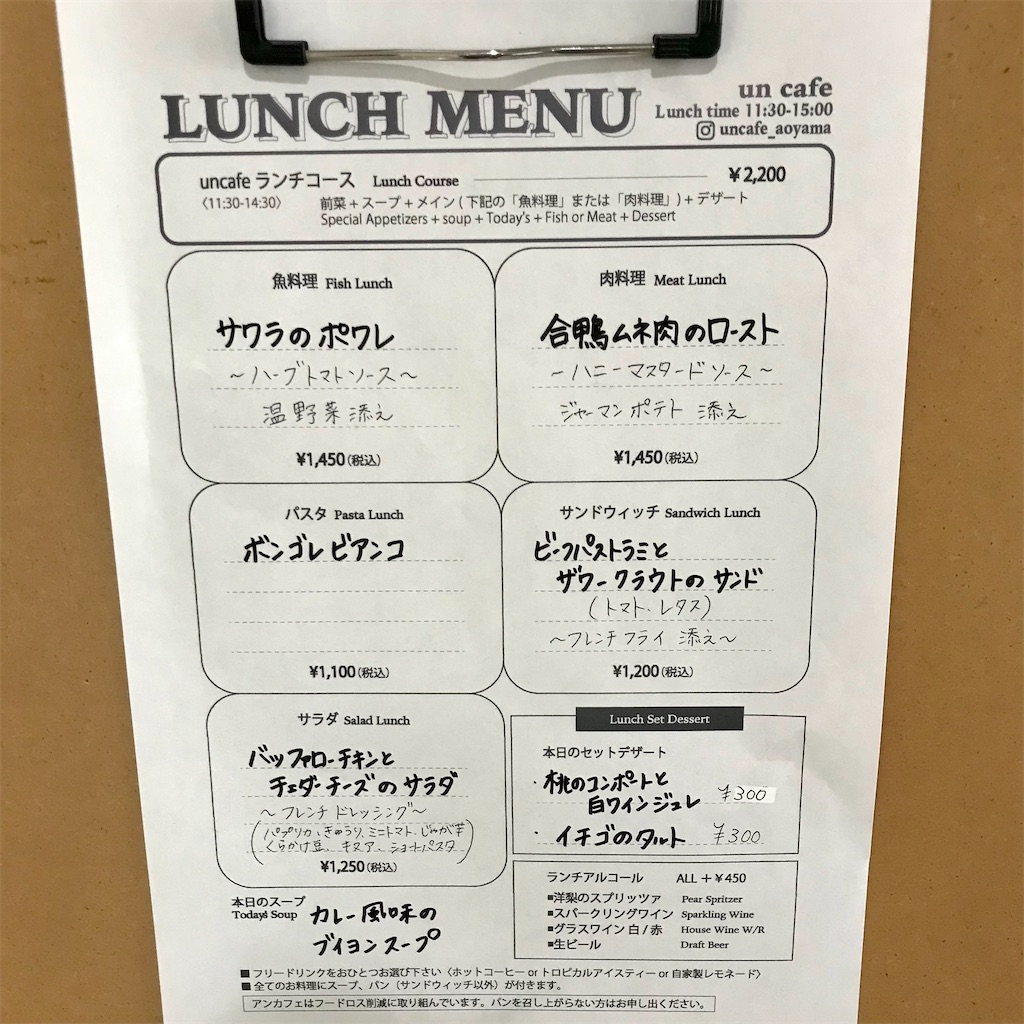 LUNCH MENU
un cafe
Lunch time 11:30-15:00
uncafe_aoyama
uncafe ランチコース Lunch Course ¥2,200
〈11:30-14:30〉 前菜+スープ+メイン(下記の「魚料理」または「肉料理」)+デザート
Special Appetizers + soup + Today's + Fish or Meat + Dessert
魚料理 Fish Lunch
サワラのポワレ
~ハーブトマトソース~
温野菜添え
¥1,450(税込)
肉料理 Meat Lunch
合鴨ムネ肉のロースト
~ハニーマスタードソース~
ジャーマンポテト 添え
¥1,450(税込)
パスタ Pasta Lunch
ボンゴレビアンコ
¥1,100(税込)
サンドウィッチ Sandwich Lunch
ビーフパストラミと
ザワークラウトのサンド
(トマト、レタス)
~フレンチフライ 添え~
¥1,200(税込)
サラダ Salad Lunch
バッファローチキンと
チェダーチーズのサラダ
~フレンチドレッシング~
(パプリカ、きゅうり、ミニトマト、じゃが芋
くらかけ豆、キヌア、ショートパスタ)
¥1,250(税込)
Lunch Set Dessert
本日のセットデザート
・桃のコンポートと
白ワインジュレ ¥300
・イチゴのタルト ¥300
ランチアルコール ALL+¥450
■洋梨のスプリッツァ Pear Spritzer
■スパークリングワイン Sparkling Wine
■グラスワイン 白/赤 House Wine W/R
■生ビール Draft Beer
本日のスープ
Today's Soup
カレー風味の
ブイヨンスープ
■フリードリンクをおひとつお選び下さい〈ホットコーヒー or トロピカルアイスティー or 自家製レモネード〉
■全てのお料理にスープ、パン(サンドウィッチ以外)が付きます。
アンカフェはフードロス削減に取り組んでいます。パンを召し上がらない方はお申し出ください。